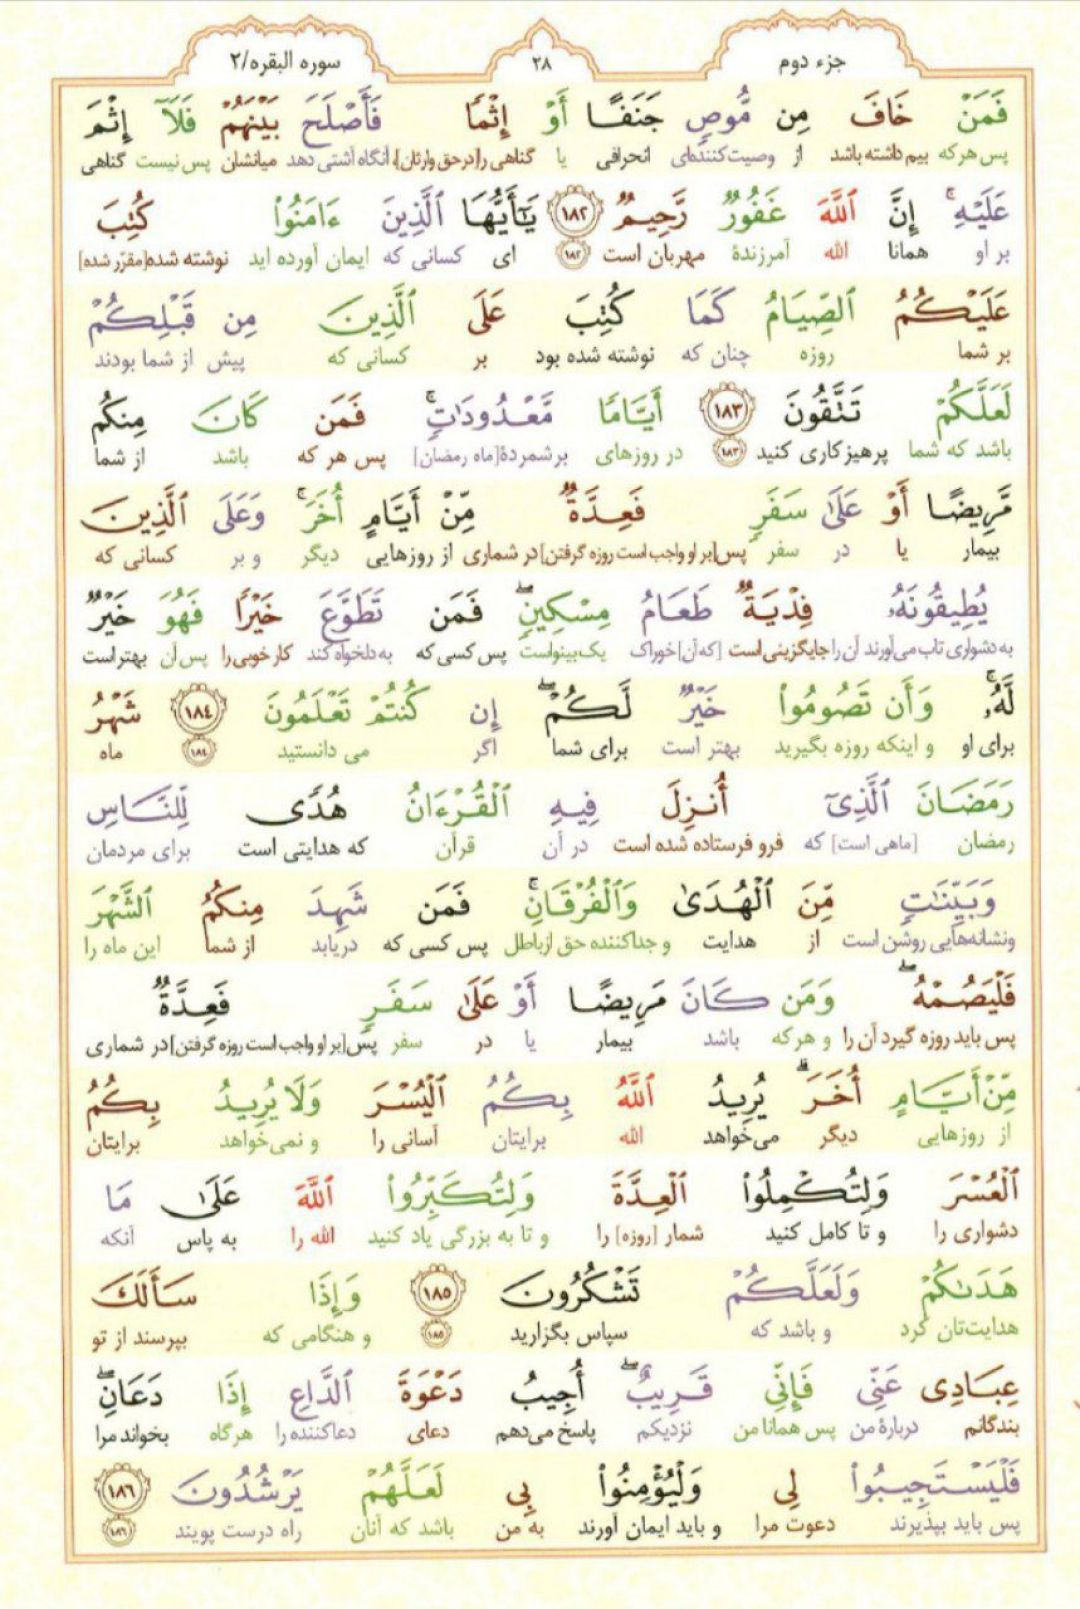 جزء دوم ۲۸ سوره البقره/۲
فَمَنْ خَافَ مِن مُّوصٍ جَنَفًا أَوْ إِثْمًا فَأَصْلَحَ بَيْنَهُمْ فَلَآ إِثْمَ
پس هر که بیم داشته باشد از وصیت‌کننده‌ای انحرافی یا گناهی را[در حق وارثان]، آنگاه آشتی دهد میانشان پس نیست گناهی
عَلَيْهِ ۚ إِنَّ ٱللَّهَ غَفُورٌ رَّحِيمٌ ١٨٢ يَـٰٓأَيُّهَا ٱلَّذِينَ ءَامَنُوا۟ كُتِبَ
بر او همانا الله آمرزندهٔ مهربان است ۱۸۲ ای کسانی که ایمان آورده اید نوشته شده[مقرّر شده]
عَلَيْكُمُ ٱلصِّيَامُ كَمَا كُتِبَ عَلَى ٱلَّذِينَ مِن قَبْلِكُمْ
بر شما روزه چنان که نوشته شده بود بر کسانی که پیش از شما بودند
لَعَلَّكُمْ تَتَّقُونَ ١٨٣ أَيَّامًا مَّعْدُودَٰتٍ ۚ فَمَن كَانَ مِنكُم
باشد که شما پرهیزکاری کنید ۱۸۳ در روزهای برشمردهٔ[ماه رمضان] پس هر که باشد از شما
مَّرِيضًا أَوْ عَلَىٰ سَفَرٍ فَعِدَّةٌ مِّنْ أَيَّامٍ أُخَرَ ۚ وَعَلَى ٱلَّذِينَ
بیمار یا در سفر پس[بر او واجب است روزه گرفتن]در شماری از روزهایی دیگر و بر کسانی که
يُطِيقُونَهُۥ فِدْيَةٌ طَعَامُ مِسْكِينٍ ۖ فَمَن تَطَوَّعَ خَيْرًا فَهُوَ خَيْرٌ
به دشواری تاب می‌آورند آن را جایگزینی است [که آن] خوراک یک بینواست پس کسی که به دلخواه کند کار خوبی را پس آن بهتر است
لَّهُۥ ۚ وَأَن تَصُومُوا۟ خَيْرٌ لَّكُمْ ۖ إِن كُنتُمْ تَعْلَمُونَ ١٨٤ شَهْرُ
برای او و اینکه روزه بگیرید بهتر است برای شما اگر می دانستید ۱۸۴ ماه
رَمَضَانَ ٱلَّذِىٓ أُنزِلَ فِيهِ ٱلْقُرْءَانُ هُدًى لِّلنَّاسِ
رمضان [ماهی است] که فرو فرستاده شده است در آن قرآن که هدایتی است برای مردمان
وَبَيِّنَـٰتٍ مِّنَ ٱلْهُدَىٰ وَٱلْفُرْقَانِ ۚ فَمَن شَهِدَ مِنكُمُ ٱلشَّهْرَ
ونشانه‌هایی روشن است از هدایت و جداکننده حق از باطل پس کسی که دریابد از شما این ماه را
فَلْيَصُمْهُ ۖ وَمَن كَانَ مَرِيضًا أَوْ عَلَىٰ سَفَرٍ فَعِدَّةٌ
پس باید روزه گیرد آن را و هر که باشد بیمار یا در سفر پس[بر او واجب است روزه گرفتن]در شماری
مِّنْ أَيَّامٍ أُخَرَ ۗ يُرِيدُ ٱللَّهُ بِكُمُ ٱلْيُسْرَ وَلَا يُرِيدُ بِكُمُ
از روزهایی دیگر می‌خواهد الله برایتان آسانی را و نمی‌خواهد برایتان
ٱلْعُسْرَ وَلِتُكْمِلُوا۟ ٱلْعِدَّةَ وَلِتُكَبِّرُوا۟ ٱللَّهَ عَلَىٰ مَا
دشواری را و تا کامل کنید شمار [روزه] را و تا به بزرگی یاد کنید الله را به پاس آنکه
هَدَىٰكُمْ وَلَعَلَّكُمْ تَشْكُرُونَ ١٨٥ وَإِذَا سَأَلَكَ
هدایت‌تان کرد و باشد که سپاس بگزارید ۱۸۵ و هنگامی که بپرسند از تو
عِبَادِى عَنِّى فَإِنِّى قَرِيبٌ ۖ أُجِيبُ دَعْوَةَ ٱلدَّاعِ إِذَا دَعَانِ ۖ
بندگانم دربارهٔ من پس همانا من نزدیکم پاسخ می‌دهم دعای دعاکننده را هرگاه بخواند مرا
فَلْيَسْتَجِيبُوا۟ لِى وَلْيُؤْمِنُوا۟ بِى لَعَلَّهُمْ يَرْشُدُونَ ١٨٦
پس باید بپذیرند دعوت مرا و باید ایمان آورند به من باشد که آنان راه درست پویند ۱۸۶